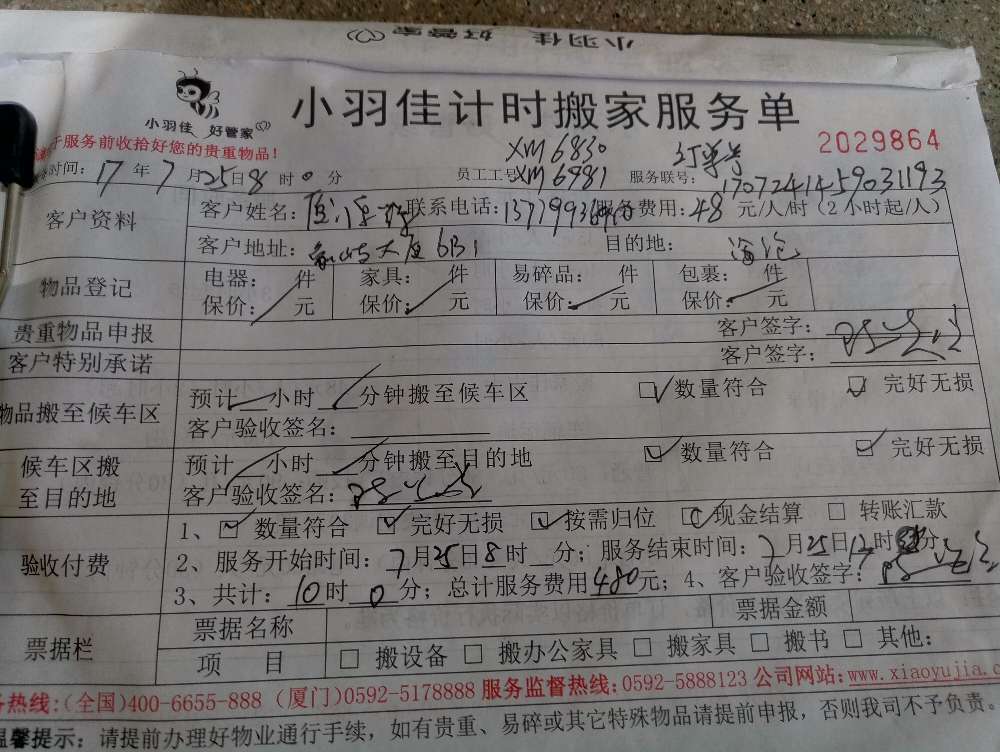 小羽佳 好管家
小羽佳 好管家
小羽佳计时搬家服务单
服务前收拾好您的贵重物品！
2029864
XM6830
时间：17年7月25日8时0分 员工工号XM6981 服务联号：170724145903 1193
客户资料 客户姓名： 联系电话：服务费用：48元/人/时（2小时起/人）
客户地址： 大厦6B1 目的地：海沧
物品登记 电器： 件 家具： 件 易碎品： 件 包裹： 件
保价： 元 保价： 元 保价： 元 保价： 元
贵重物品申报 客户签字：
客户特别承诺 客户签字：
物品搬至候车区 预计 小时 分钟搬至候车区 数量符合 完好无损
客户验收签名：
候车区搬至目的地 预计 小时 分钟搬至目的地 数量符合 完好无损
客户验收签名：
验收付费 1、数量符合 完好无损 按需归位 现金结算 转账汇款
2、服务开始时间：7月25日8时 分；服务结束时间：7月25日 时 分；
3、共计：10时0分；总计服务费用480元；4、客户验收签字：
票据栏 票据名称 票据金额
项 目 □ 搬设备 □ 搬办公家具 □ 搬家具 □ 搬书 □ 其他：
务热线：(全国)400-6655-888 (厦门)0592-5178888 服务监督热线：0592-5888123 公司网站：www.xiaoyujia.c
温馨提示：请提前办理好物业通行手续，如有贵重、易碎或其它特殊物品请提前申报，否则我司不予负责。